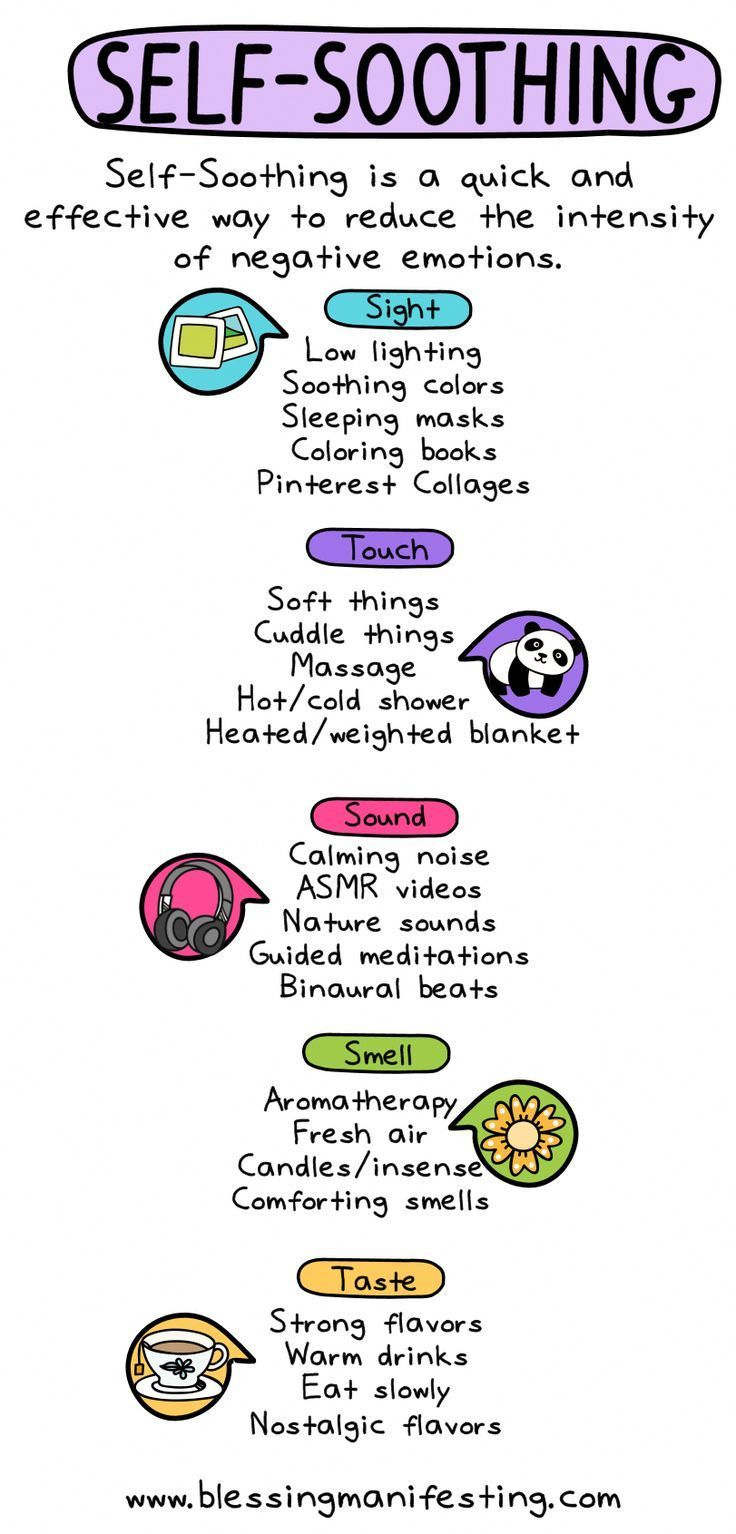 SELF-SOOTHING
Self-Soothing is a quick and
effective way to reduce the intensity
of negative emotions.
Sight
Low lighting
Soothing colors
Sleeping masks
Coloring books
Pinterest Collages
Touch
Soft things
Cuddle things
Massage
Hot/cold shower
Heated/weighted blanket
Sound
Calming noise
ASMR videos
Nature sounds
Guided meditations
Binaural beats
Smell
Aromatherapy
Fresh air
Candles/insense
Comforting smells
Taste
Strong flavors
Warm drinks
Eat slowly
Nostalgic flavors
www.blessingmanifesting.com